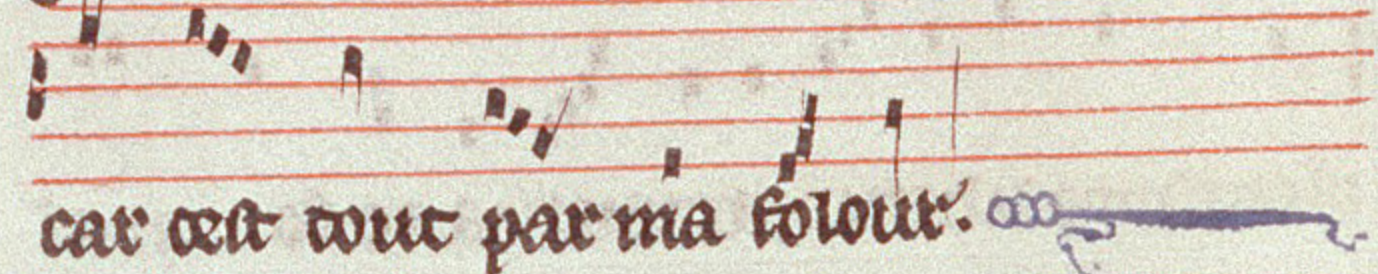 car cest tout par ma folour.